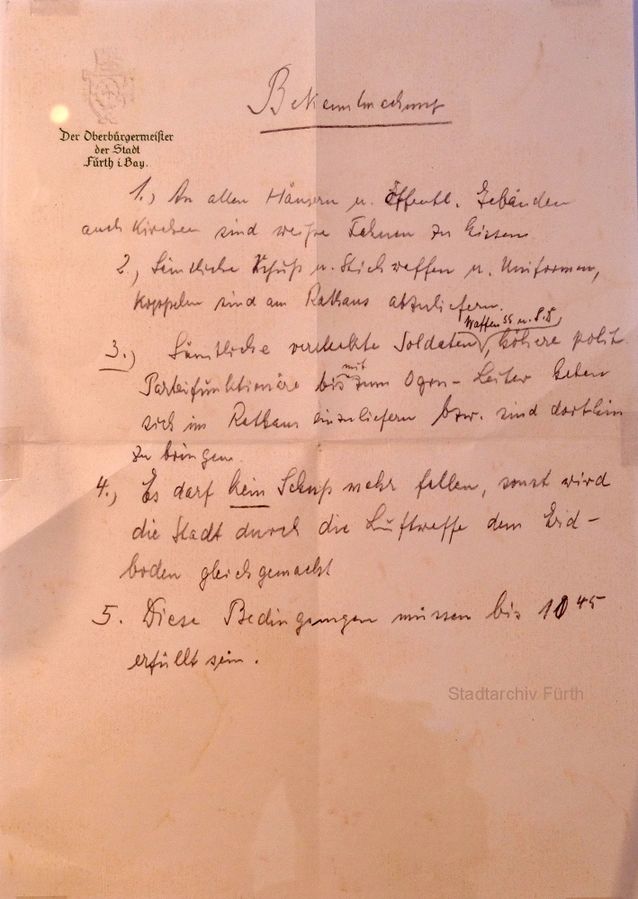 Der Oberbürgermeister
der Stadt
Fürth i. Bay.
Bekanntmachung
1., An allen Häusern u. Öffentl. Gebäuden
auch Kirchen sind weiße Fahnen zu hissen
2., Sämtliche Schuß u. Stichwaffen u. Uniformen,
Koppeln sind am Rathaus abzuliefern.
Waffen SS u. S.D,
3.) Sämtliche versteckte Soldaten, höhere polit.
mit
Parteifunktionäre bis zum Ogru-Leiter haben
sich im Rathaus einzuliefern bzw. sind dorthin
zu bringen.
4., Es darf kein Schuß mehr fallen, sonst wird
die Stadt durch die Luftwaffe dem Erd-
boden gleichgemacht
5. Diese Bedingungen müssen bis 10 45
erfüllt sein.
Stadtarchiv Fürth